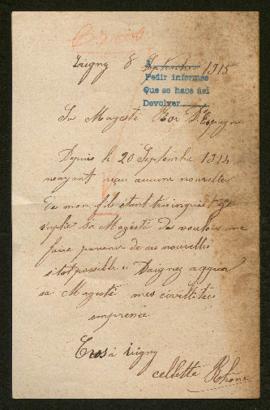 Irigny 8 Septembre 1915
Pedir informes
Que se hace así
Devolver
Sa Magesté Roi d'Espagne
Depuis le 20 Septembre 1914
n'ayant reçu aucune nouvelles
De mon fils étant très inquiet je
suplie sa Magesté de vouloir me
faire parvenir de ses nouvelles
sitot possible. Daignez agréer
sa Magesté mes civilités
empressé
à Irigny
Rhône